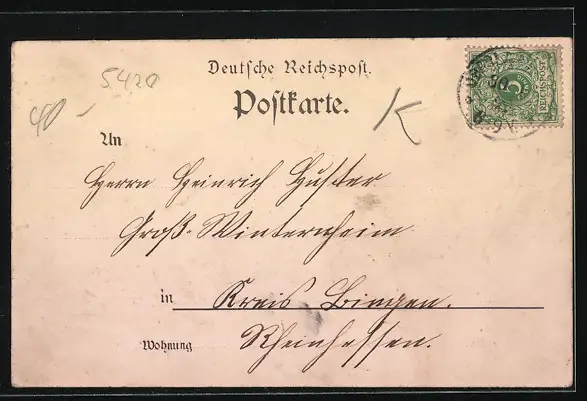 5420
40 -
Deutsche Reichspost.
Postkarte.
K
REICHSPOST
5
An
Herrn Heinrich Huster
Groß-Winternheim
in Kreis Bingen.
Wohnung Rheinhessen.